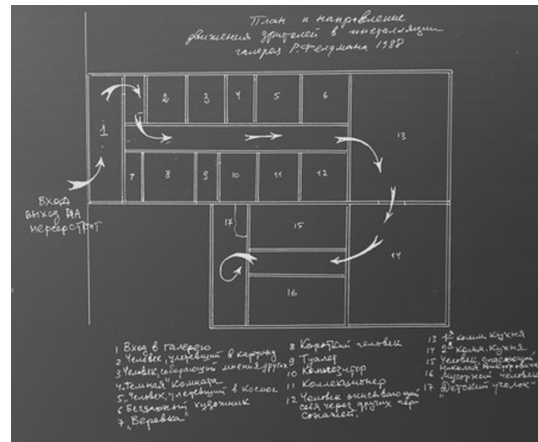 План и направление
движения зрителей в инсталляции
галерея Р. Фелдмана 1988
1
2
3
4
5
6
13
7
8
9
10
11
12
Вход
выход на
мерсер стрит
17
15
14
16
1 Вход в галерею
2 Человек, улетевший в картину
3 Человек, собирающий мнения других
4 "Темная" комната
5 Человек, улетевший в космос
6 Бездарный художник
7 "Веревка"
8 Короткий человек
9 Туалет
10 Композитор
11 Коллекционер
12 Человек описывающий
себя через других пер-
сонажей.
13 1я комм. кухня
14 2я комм. кухня
15 Человек спасающий
Николая Викторовича
16 Мусорный человек
17 "Детский уголок"